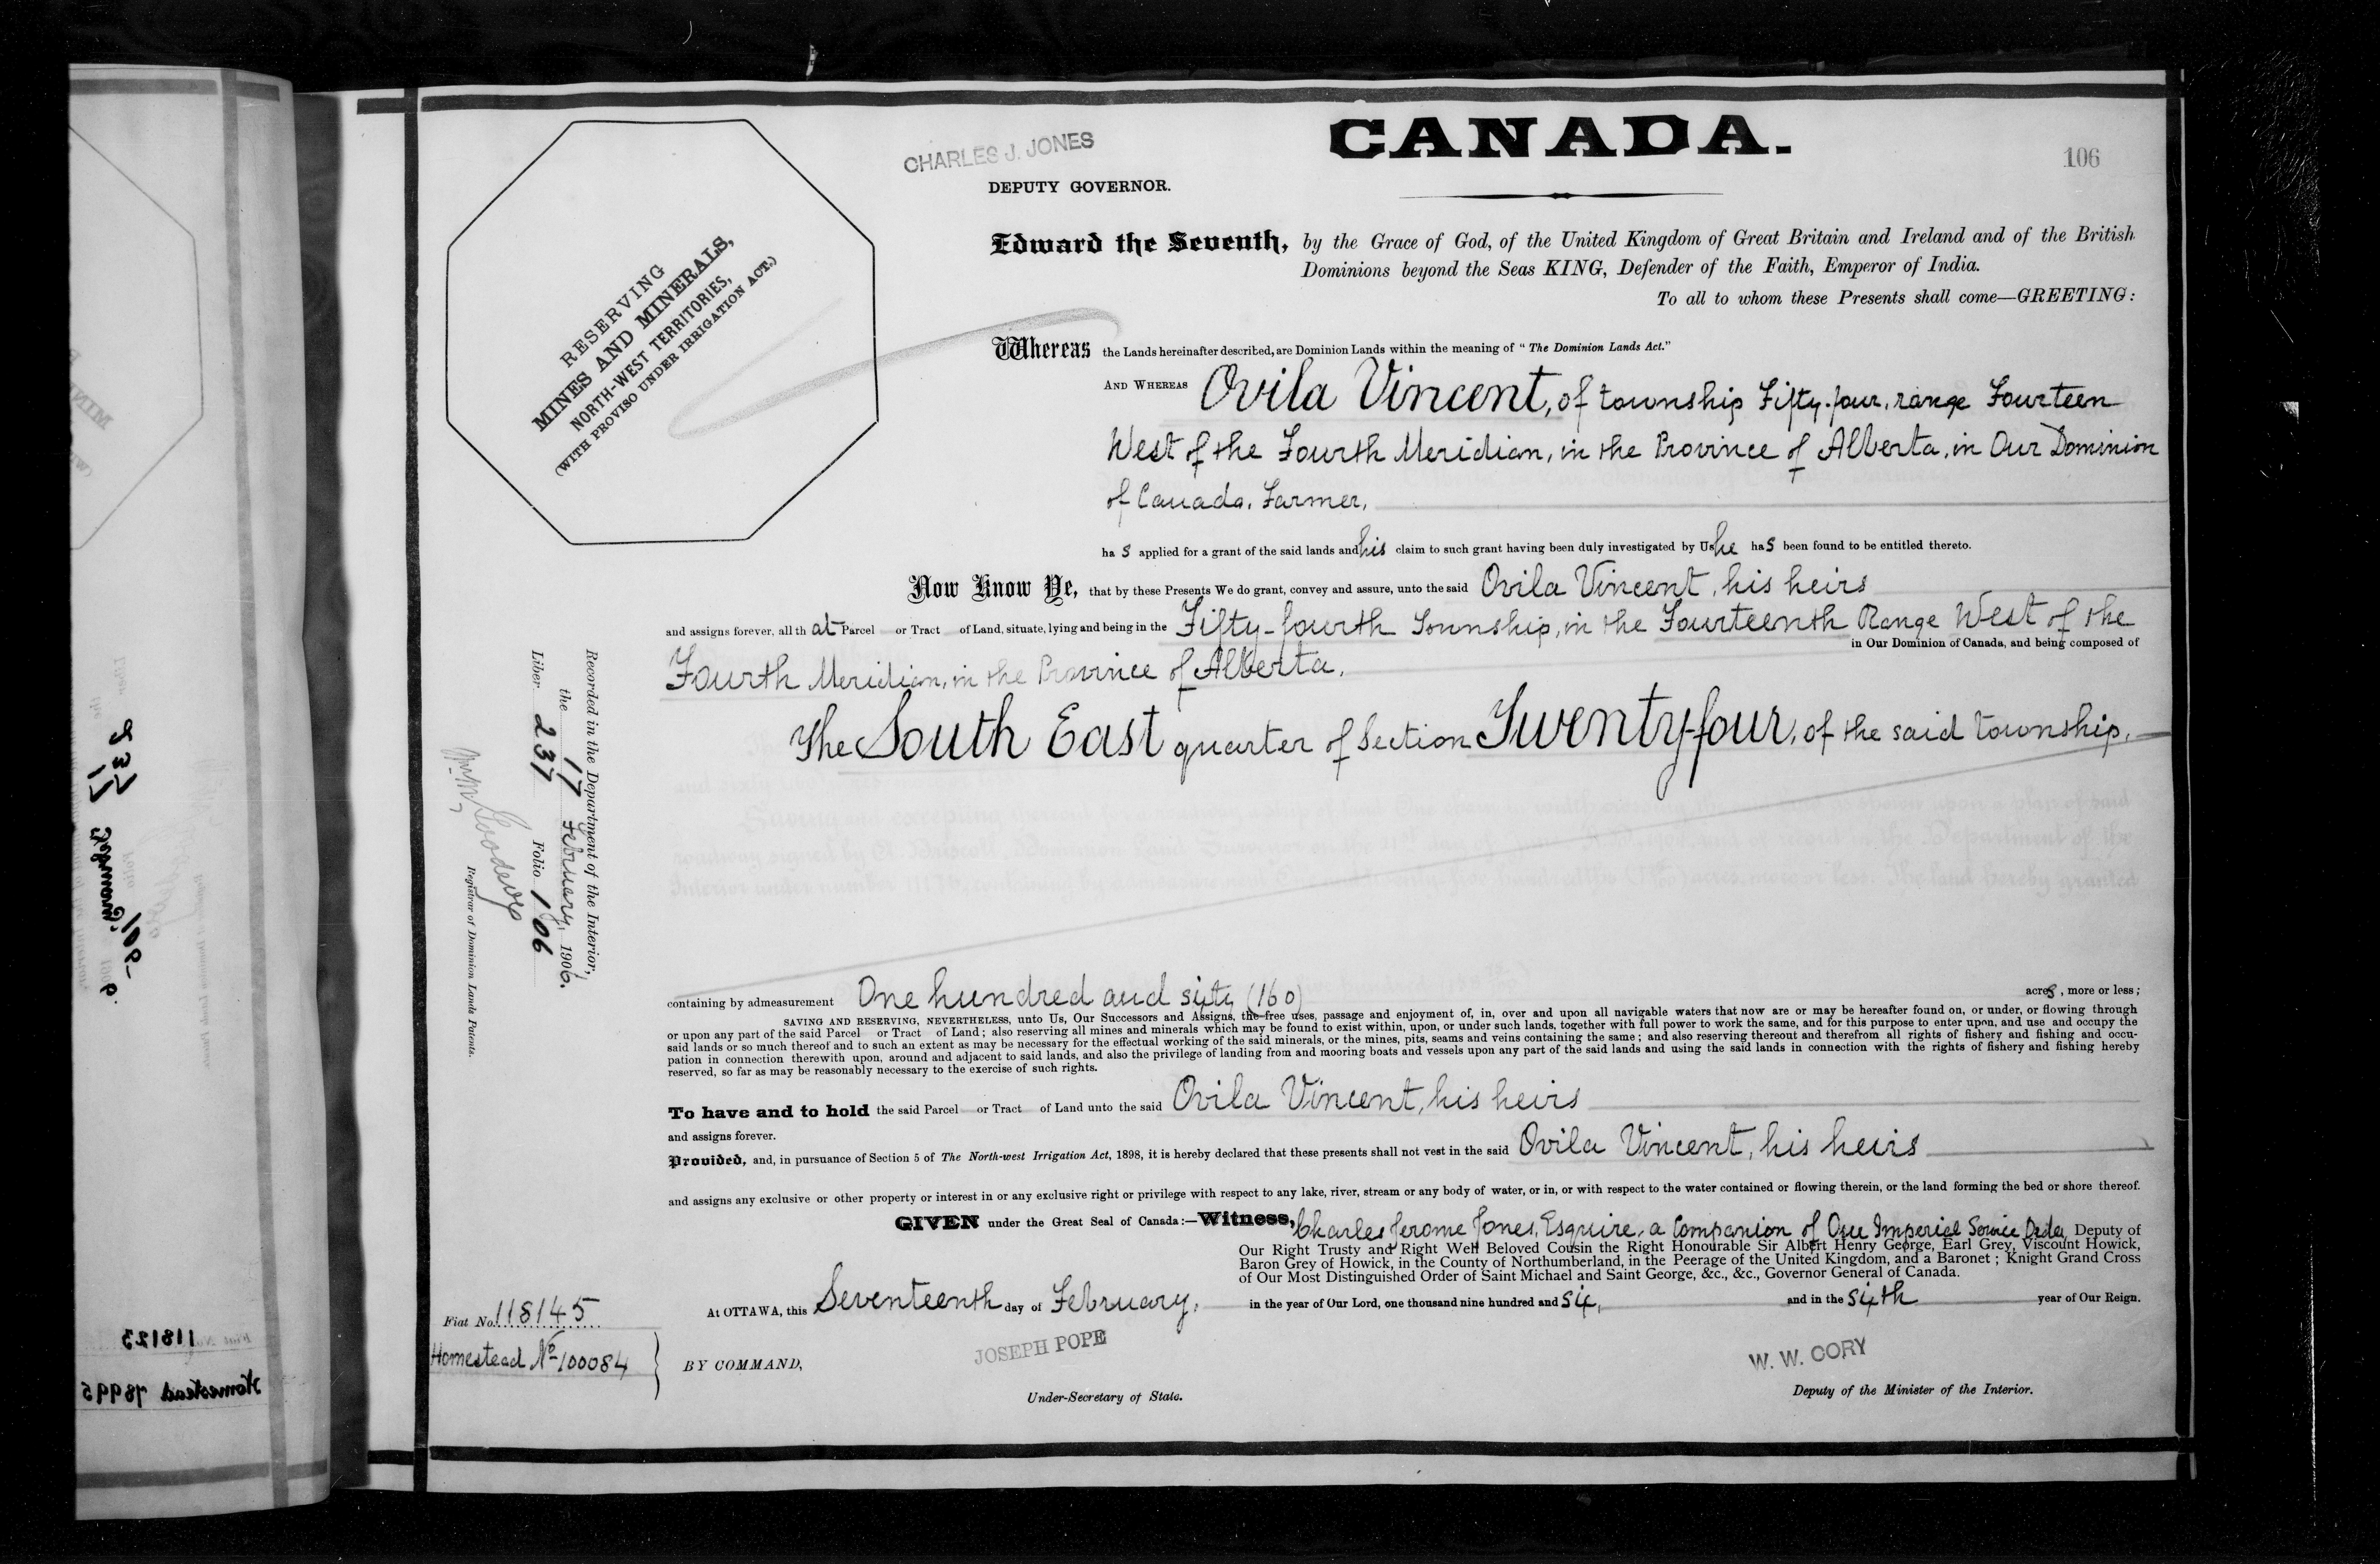 CANADA.
106
CHARLES J. JONES
DEPUTY GOVERNOR.
RESERVING
MINES AND MINERALS,
NORTH-WEST TERRITORIES,
(WITH PROVISO UNDER IRRIGATION ACT.)
Edward the Seventh, by the Grace of God, of the United Kingdom of Great Britain and Ireland and of the British
Dominions beyond the Seas KING, Defender of the Faith, Emperor of India.
To all to whom these Presents shall come—GREETING:
Whereas the Lands hereinafter described, are Dominion Lands within the meaning of "The Dominion Lands Act."
AND WHEREAS Ovila Vincent, of township Fifty-four, range Fourteen
West of the Fourth Meridian, in the Province of Alberta, in Our Dominion
of Canada, Farmer,
has applied for a grant of the said lands and his claim to such grant having been duly investigated by Us he has been found to be entitled thereto.
Now Know Ye, that by these Presents We do grant, convey and assure, unto the said Ovila Vincent, his heirs
and assigns forever, all that Parcel or Tract of Land, situate, lying and being in the Fifty-fourth Township, in the Fourteenth Range West of the
in Our Dominion of Canada, and being composed of
Fourth Meridian, in the Province of Alberta.
The South East quarter of Section Twenty-four, of the said township,
containing by admeasurement One hundred and sixty (160) acres, more or less;
SAVING AND RESERVING, NEVERTHELESS, unto Us, Our Successors and Assigns, the free uses, passage and enjoyment of, in, over and upon all navigable waters that now are or may be hereafter found on, or under, or flowing through
or upon any part of the said Parcel or Tract of Land; also reserving all mines and minerals which may be found to exist within, upon, or under such lands, together with full power to work the same, and for this purpose to enter upon, and use and occupy the
said lands or so much thereof and to such an extent as may be necessary for the effectual working of the said minerals, or the mines, pits, seams and veins containing the same; and also reserving thereout and therefrom all rights of fishery and fishing and occu-
pation in connection therewith upon, around and adjacent to said lands, and also the privilege of landing from and mooring boats and vessels upon any part of the said lands and using the said lands in connection with the rights of fishery and fishing hereby
reserved, so far as may be reasonably necessary to the exercise of such rights.
To have and to hold the said Parcel or Tract of Land unto the said Ovila Vincent, his heirs
and assigns forever.
Provided, and, in pursuance of Section 5 of The North-west Irrigation Act, 1898, it is hereby declared that these presents shall not vest in the said Ovila Vincent, his heirs
and assigns any exclusive or other property or interest in or any exclusive right or privilege with respect to any lake, river, stream or any body of water, or in, or with respect to the water contained or flowing therein, or the land forming the bed or shore thereof.
GIVEN under the Great Seal of Canada:—Witness, Charles Jerome Jones, Esquire, a Companion of Our Imperial Service Order, Deputy of
Our Right Trusty and Right Well Beloved Cousin the Right Honourable Sir Albert Henry George, Earl Grey, Viscount Howick,
Baron Grey of Howick, in the County of Northumberland, in the Peerage of the United Kingdom, and a Baronet; Knight Grand Cross
of Our Most Distinguished Order of Saint Michael and Saint George, &c., &c., Governor General of Canada.
At OTTAWA, this Seventeenth day of February, in the year of Our Lord, one thousand nine hundred and six, and in the sixth year of Our Reign.
Fiat No. 118145
Homestead No 100084
BY COMMAND,
JOSEPH POPE
Under-Secretary of State.
W. W. CORY
Deputy of the Minister of the Interior.
Recorded in the Department of the Interior,
the 17 February, 1906.
Liber 237 Folio 106
Registrar of Dominion Lands Patents.
118123
Homestead 78995